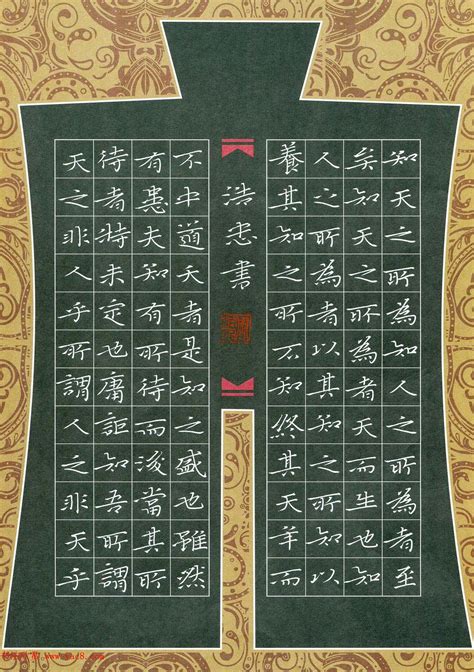 知天之所為知人之所為者至
矣知天之所為者天而生也知
人之所為者以其知之所知以
養其知之所不知終其天年而
浩忠書
不中道夭者是知之盛也雖然
有患夫知有所待而後當其所
待者特未定也庸詎知吾所謂
天之非人乎所謂人之非天乎